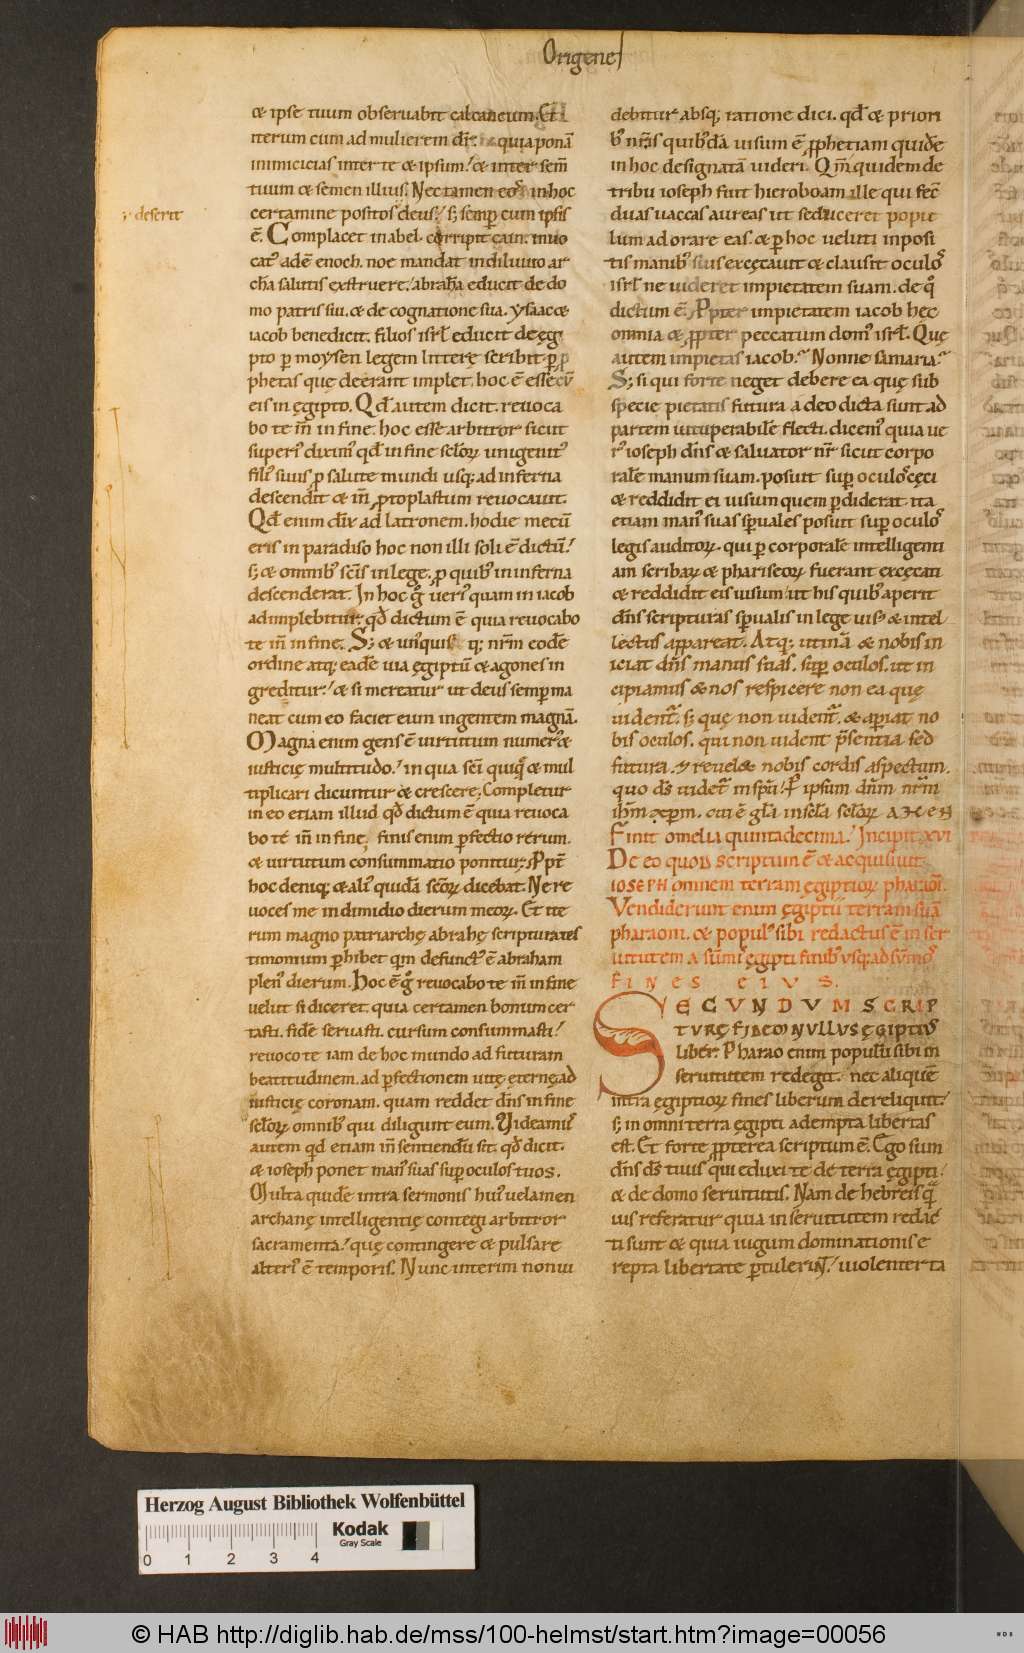 Origenes
& ipse tuum obseruabit calcaneum. Et
iterum cum ad mulierem dr̄. quia ponā
inimicicias inter te & ipsum. & inter sem̄
tuum & semen illius. Nec tamen eos̄ in hoc
certamine positos deus. s; semp̄ cum ipsis
deserit
ē. Complacet in abel. corripit cain. inuo
cat' adē enoch. noe mandat in diluuio ar
chā salutis exstruere. abrahā educit de do
mo patris sui. & de cognatione sua. ysaac &
iacob benedicit. filios isrl̄ educit de ęgi
pto p̄ moysen legem litterę scribit. p̄ p
phetas quę deerant implet. hoc ē esse cū
eis in ęgipto. Qd̄ autem dicit. reuoca
bo te in̄ in fine. hoc esse arbitror sicut
superi' diximꝰ qd̄ in fine sc̄loꝝ unigenitꝰ
filiꝰ suus p salute mundi usq; ad inferna
descendit & in̄ protoplastum reuocauit.
Qd̄ enim dr̄ ad latronem. hodie mecū
eris in paradiso hoc non illi soli ē dictū.
s; & omnibꝰ sc̄is intellege. p quibꝰ in inferna
descenderat. In hoc g̊ ueriꝰ quam in iacob
adimplebitur. qd̄ dictum ē quia reuocabo
te in̄ in fine. S; & unꝰquis q; nr̄m eodē
ordine atq; eadē uia ęgiptū & agones in
greditur. & si mereatur ut deus semp̄ ma
neat cum eo faciet eum in gentem magnā.
Magna enim gens ē uirtutum numerꝰ &
iusticię multitudo. in qua sc̄i quiq; & mul
tiplicari dicuntur & crescere; Completur
in eo etiam illud qd̄ dictum ē quia reuoca
bo te in̄ in fine. finis enim p̄fectio rerum.
& uirtutum consummatio ponitur; Ppt̄
hoc deniq; & aliꝰ quidā sc̄oꝝ dicebat. Ne re
uoces me in dimidio dierum meoꝝ. Et ite
rum magno patriarchę abrahę scriptura tes
timonium p̄hibet qm̄ defunctꝰ ē abraham
plenꝰ dierum. Hoc ē g̊ reuocabo te in̄ in fine
uelut si diceret. quia certamen bonum cer
tasti. fidē seruasti. cursum consummasti.
reuoco te iam de hoc mundo ad futuram
beatitudinem. ad p̄fectionem uitę ęternę. ad
iusticię coronam. quam reddet dn̄s in fine
sc̄loꝝ omnibꝰ qui diligunt eum. Videamꝰ
autem qd̄ etiam in̄ sentiendū sit. qd̄ dicit.
& ioseph ponet manꝰ suas sup̄ oculos tuos.
Multa quidē intra sermonis huiꝰ uelamen
archanę intelligentię contegi arbitror
sacramenta. quę contingere & pulsare
alteriꝰ ē temporis. Nunc interim non ui
debitur absq; ratione dici. qd̄ & priori
bꝰ nr̄is quibꝰdā uisum ē pphetiam quidē
in hoc designatā uideri. Qm̄ quidem de
tribu ioseph fuit hieroboam ille qui fec̄
duas uaccas aureas ut seduceret popu
lum adorare eas. & p̄ hoc ueluti inposi
tis manibꝰ suis excęcauit & clausit oculoꝰ
isrl̄ ne uideret impietatem suam. de q̊
dictum ē. Ppter impietatem iacob hec
omnia & ppter peccatum domꝰ isrl̄. Quę
autem impietas iacob. Nonne samaria.
S; si qui forte neget debere ea quę sub
specie pietatis futura a deo dicta sunt ad
partem uituperabilē flecti. dicemꝰ quia ue
rꝰ ioseph dn̄s & saluator nr̄ sicut corpo
ralē manum suam. posuit sup̄ oculoꝰ cęci
& reddidit ei uisum quem p̄diderat. ita
etiam manꝰ suas sp̄uales posuit sup̄ oculoꝰ
legis auditoꝝ. qui p̄ corporalē intelligenti
am scribaꝝ & phariseoꝝ fuerant excęcati
& reddidit eis uisum ut his quibꝰ aperit
dn̄s scripturas sp̄ualis in lege uisꝰ & intel
lectus appareat. Atq; utinā & nobis in
iciat dn̄s manus suas. sup̄ oculos. ut in
cipiamus & nos respicere non ea quę
uident̄. s; quę non uident̄. & ap̄iat no
bis oculos. qui non uident p̄sentia sed
futura. & reuelet nobis cordis aspectum.
quo ds̄ uidet̄ in sp̄u. P ipsum dn̄m nr̄m
ih̄m xp̄m. cui ē gl̄a in scl̄a scl̄oꝝ AMEN
Finit omelia quintadecima. Incipit xvi
De eo quod scriptum ē & acquisiuit
ioseph omnem terram ęgiptioꝝ pharaoī.
Vendiderunt enim ęgiptii terram suā
pharaoni. & populꝰ sibi redactus ē in ser
uitutem a sūmiꝰ ęgipti finibꝰ vsq; ad sūmoꝰ
FINES EIVS.
SECVNDVM SCRIP
TVRĘ FIDEM NVLLVS ĘGIPTIꝰ
liber. Pharao enim populū sibi in
seruitutem redegit. nec aliquē
intra ęgiptioꝝ fines liberum dereliquit.
s; in omni terra ęgipti adempta libertas
est. Et forte ppterea scriptum ē. Ego sum
dn̄s ds̄ tuus qui eduxi te de terra ęgipti.
& de domo seruitutis. Nam de hebreis q̄
uis referatur quia in seruitutem redac̄
ti sunt & quia iugum dominationis e
repta libertate p̄tulerint. uiolenter ta
Herzog August Bibliothek Wolfenbüttel
Kodak
Gray Scale
0 1 2 3 4
© HAB http://diglib.hab.de/mss/100-helmst/start.htm?image=00056